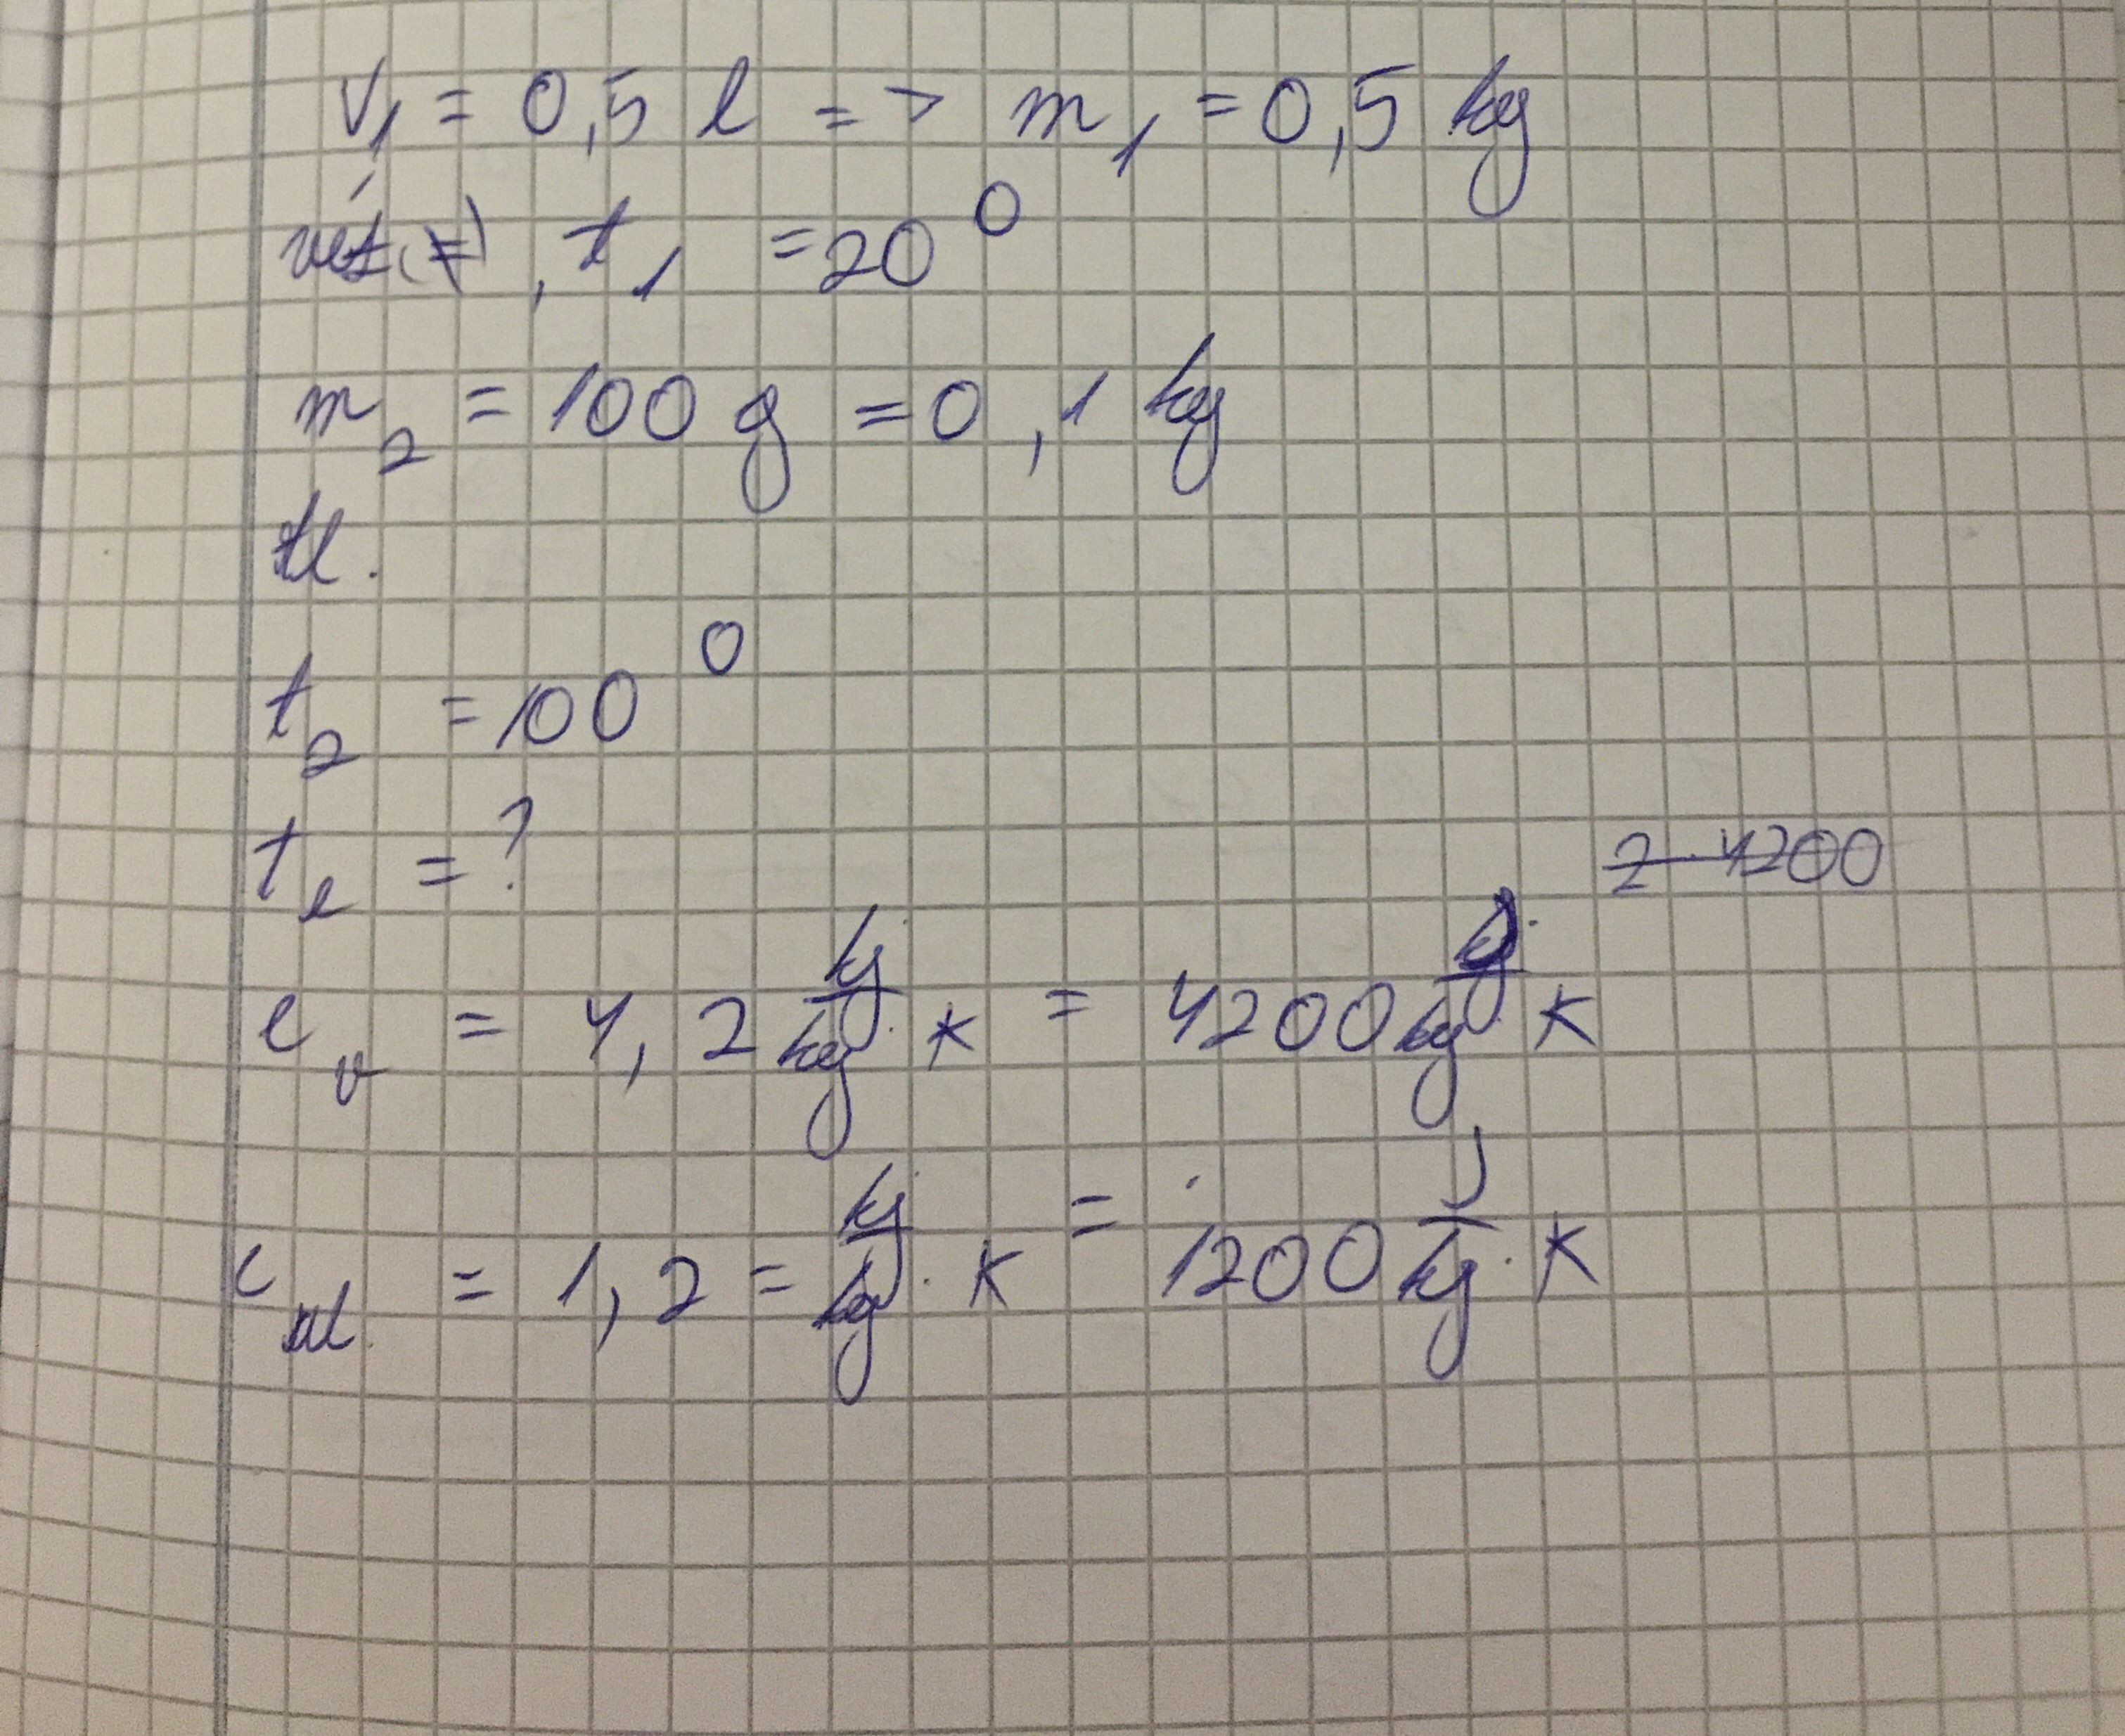 V₁ = 0,5 l => m₁ = 0,5 kg
, t₁ = 20°
m₂ = 100 g = 0,1 kg
t₂ = 100°
tₑ = ?
2·4200
c_v = 4,2 kj/kg · K = 4200 j/kg · K
c_al. = 1,2 = kj/kg · K = 1200 J/kg · K